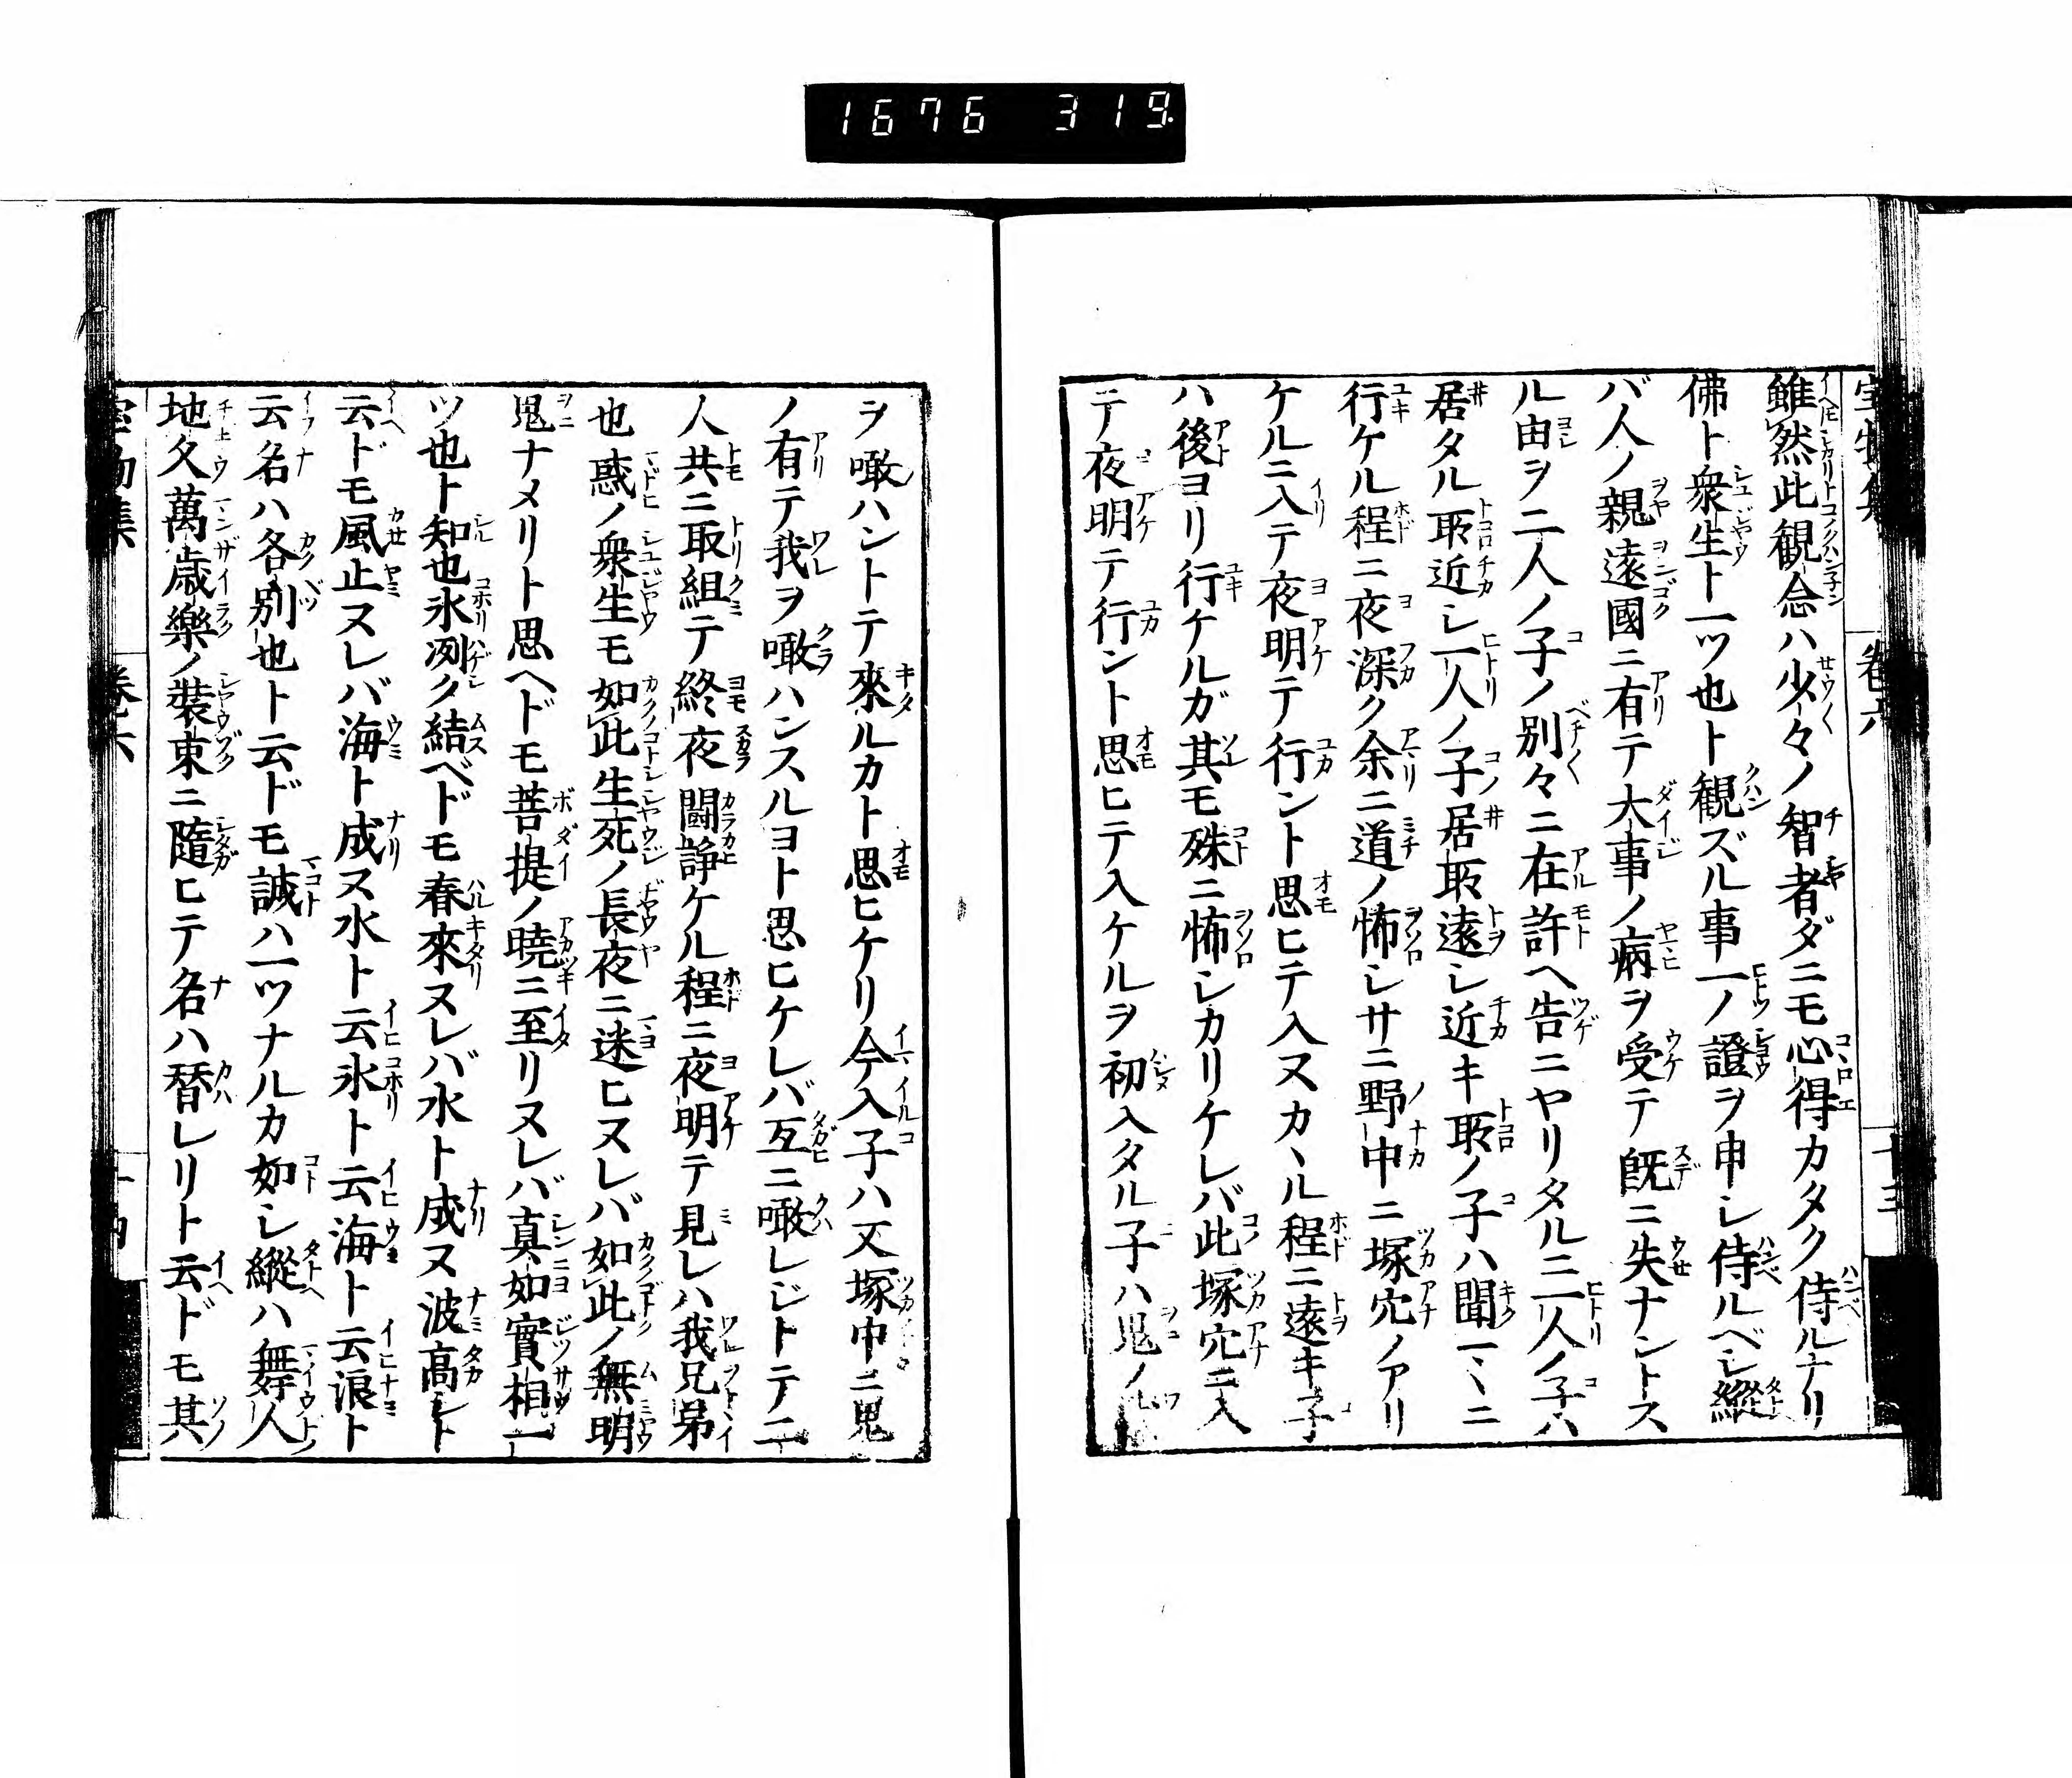 1676 319.
雖然此観念ハ少々ノ智者ダニモ心得カタク侍ルナリ
佛ト衆生ト一ツ也ト観ズル事一ノ證ヲ申シ侍ルベシ縱
バ人ノ親遠國ニ有テ大事ノ病ヲ受テ既ニ失ナントス
ル由ヲ二人ノ子ノ別々ニ在許ヘ告ニヤリタル二人ノ子ハ
居タル所近シ一人ノ子居所遠シ近キ所ノ子ハ聞マヽニ
行ケル程ニ夜深ク余ニ道ノ怖シサニ野中ニ塚穴ノアリ
ケルニ入テ夜明テ行ント思ヒテ入ヌカヽル程ニ遠キ子
ハ後ヨリ行ケルガ其モ殊ニ怖シカリケレバ此塚穴ニ入
テ夜明テ行ント思ヒテ入ケルヲ初入タル子ハ鬼ノ
ヲ噉ハントテ來ルカト思ヒケリ今入子ハ又塚中ニ鬼
ノ有テ我ヲ噉ハンスルヨト思ヒケレバ互ニ噉レジトテ二
人共ニ取組テ終夜鬪諍ケル程ニ夜明テ見レハ我兄弟
也惑ノ衆生モ如此生死ノ長夜ニ迷ヒヌレバ如此ノ無明
鬼ナメリト思ヘドモ菩提ノ暁ニ至リヌレバ真如實相一
ツ也ト知也氷冽ク結ベドモ春來ヌレバ水ト成ヌ波高シト
云ドモ風止ヌレバ海ト成ヌ水ト云氷ト云海ト云浪ト
云名ハ各別也ト云ドモ誠ハ一ツナルカ如シ縱ハ舞人
地久萬歳樂ノ裝束ニ隨ヒテ名ハ替レリト云ドモ其